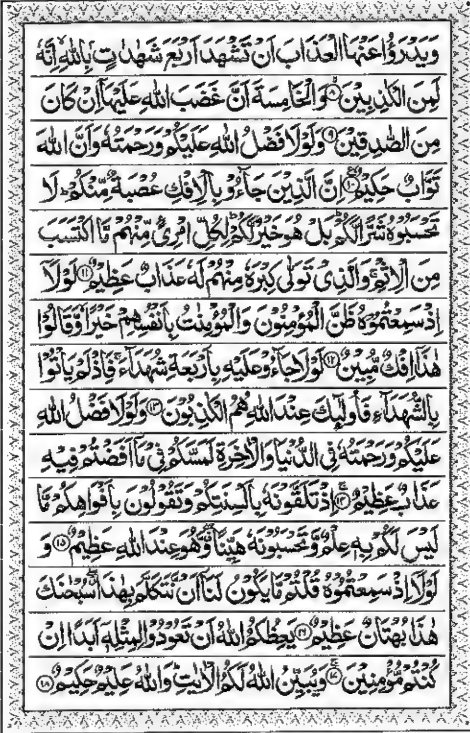 وَيَدْرَؤُا عَنْهَا الْعَذَابَ اَنْ تَشْهَدَ اَرْبَعَ شَهٰدٰتٍ بِاللّٰهِ اِنَّهٗ
لَمِنَ الْكٰذِبِيْنَ ۝٨ وَالْخَامِسَةَ اَنَّ غَضَبَ اللّٰهِ عَلَيْهَا اِنْ كَانَ
مِنَ الصّٰدِقِيْنَ ۝٩ وَلَوْلَا فَضْلُ اللّٰهِ عَلَيْكُمْ وَرَحْمَتُهٗ وَاَنَّ اللّٰهَ
تَوَّابٌ حَكِيْمٌ ۝١٠ اِنَّ الَّذِيْنَ جَآءُوْ بِالْاِفْكِ عُصْبَةٌ مِّنْكُمْ ؕ لَا
تَحْسَبُوْهُ شَرًّا لَّكُمْ ؕ بَلْ هُوَ خَيْرٌ لَّكُمْ ؕ لِكُلِّ امْرِئٍ مِّنْهُمْ مَّا اكْتَسَبَ
مِنَ الْاِثْمِ ۚ وَالَّذِيْ تَوَلّٰى كِبْرَهٗ مِنْهُمْ لَهٗ عَذَابٌ عَظِيْمٌ ۝١١ لَوْلَاۤ
اِذْ سَمِعْتُمُوْهُ ظَنَّ الْمُؤْمِنُوْنَ وَالْمُؤْمِنٰتُ بِاَنْفُسِهِمْ خَيْرًا وَّقَالُوْا
هٰذَاۤ اِفْكٌ مُّبِيْنٌ ۝١٢ لَوْلَا جَآءُوْ عَلَيْهِ بِاَرْبَعَةِ شُهَدَآءَ ۚ فَاِذْ لَمْ يَاْتُوْا
بِالشُّهَدَآءِ فَاُولٰٓئِكَ عِنْدَ اللّٰهِ هُمُ الْكٰذِبُوْنَ ۝١٣ وَلَوْلَا فَضْلُ اللّٰهِ
عَلَيْكُمْ وَرَحْمَتُهٗ فِي الدُّنْيَا وَالْاٰخِرَةِ لَمَسَّكُمْ فِيْ مَاۤ اَفَضْتُمْ فِيْهِ
عَذَابٌ عَظِيْمٌ ۝١٤ اِذْ تَلَقَّوْنَهٗ بِاَلْسِنَتِكُمْ وَتَقُوْلُوْنَ بِاَفْوَاهِكُمْ مَّا
لَيْسَ لَكُمْ بِهٖ عِلْمٌ وَّتَحْسَبُوْنَهٗ هَيِّنًا ۖ وَّهُوَ عِنْدَ اللّٰهِ عَظِيْمٌ ۝١٥ وَ
لَوْلَاۤ اِذْ سَمِعْتُمُوْهُ قُلْتُمْ مَّا يَكُوْنُ لَنَاۤ اَنْ نَّتَكَلَّمَ بِهٰذَا ۖ سُبْحٰنَكَ
هٰذَا بُهْتَانٌ عَظِيْمٌ ۝١٦ يَعِظُكُمُ اللّٰهُ اَنْ تَعُوْدُوْا لِمِثْلِهٖۤ اَبَدًا اِنْ
كُنْتُمْ مُّؤْمِنِيْنَ ۝١٧ وَيُبَيِّنُ اللّٰهُ لَكُمُ الْاٰيٰتِ ؕ وَاللّٰهُ عَلِيْمٌ حَكِيْمٌ ۝١٨